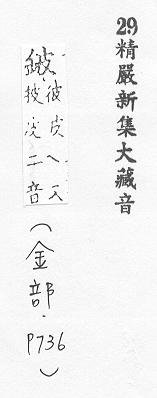 29精嚴新集大藏音
鈹
彼皮
又
披
二音
(金部.P736)